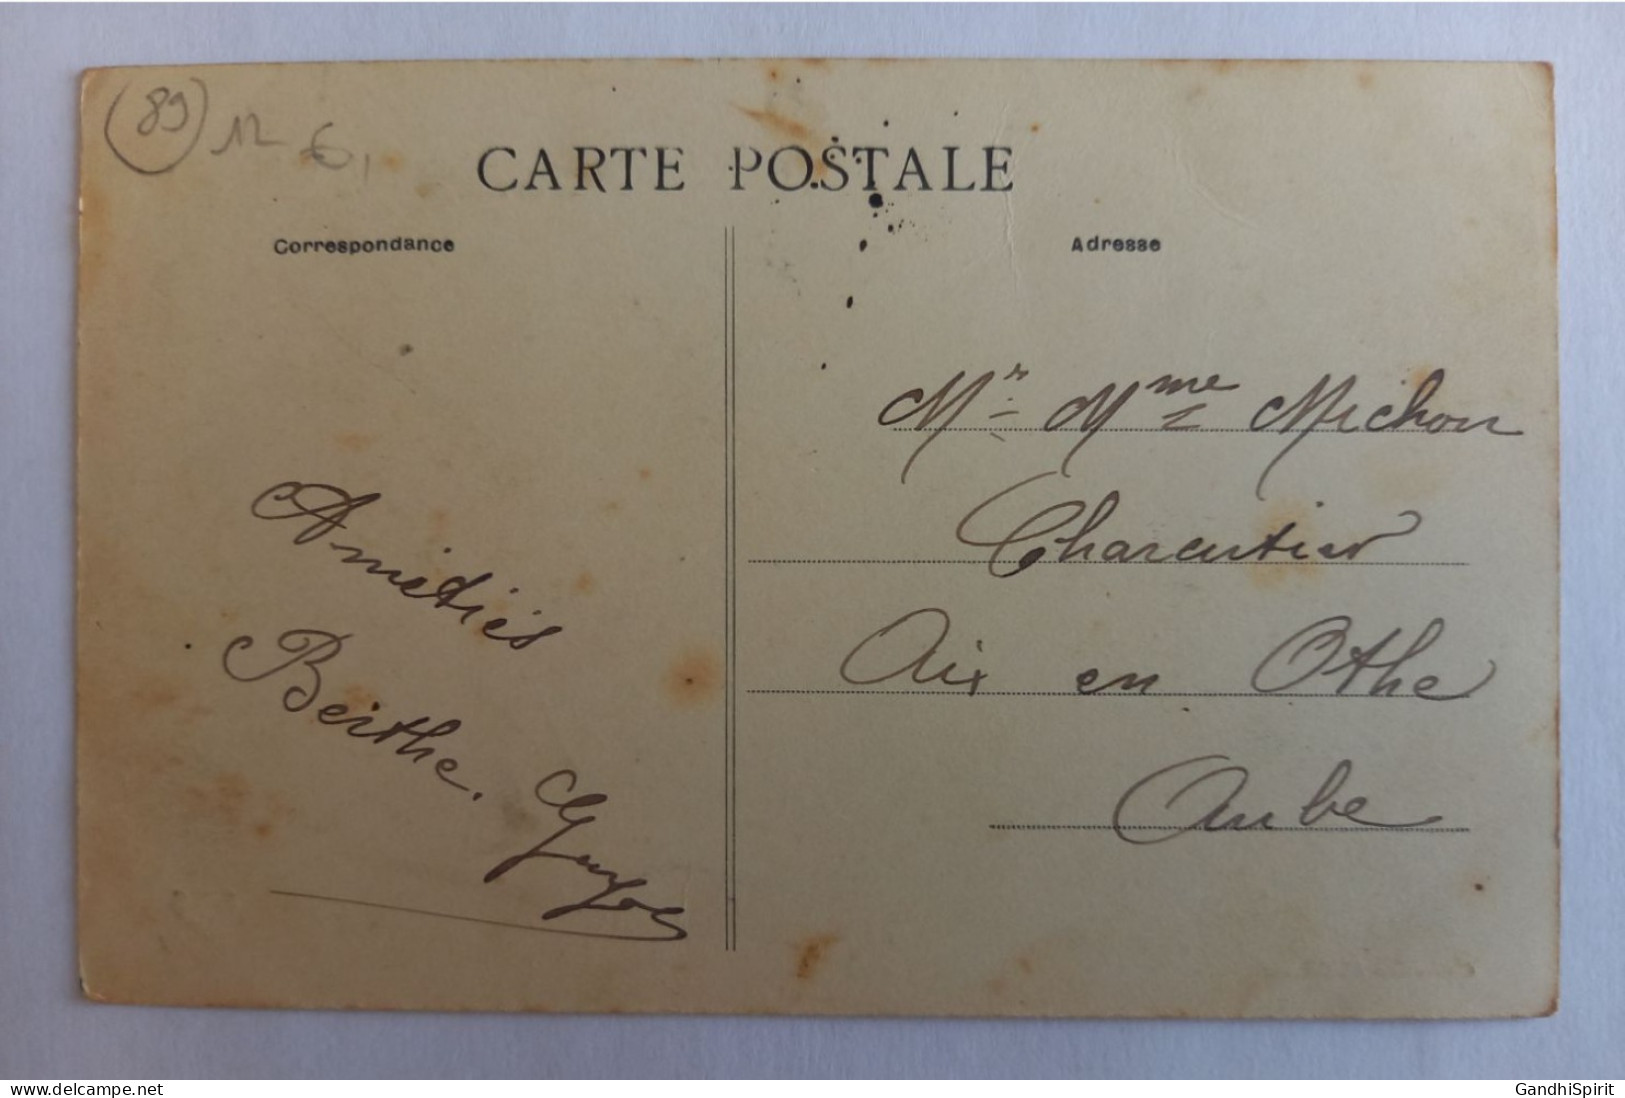 (89) 12 €
CARTE POSTALE
Correspondance
Adresse
Amitiés
Berthe. Guyot
Mr Mme Michon
Charcutier
Aix en Othe
Aube
www.delcampe.net
GandhiSpirit